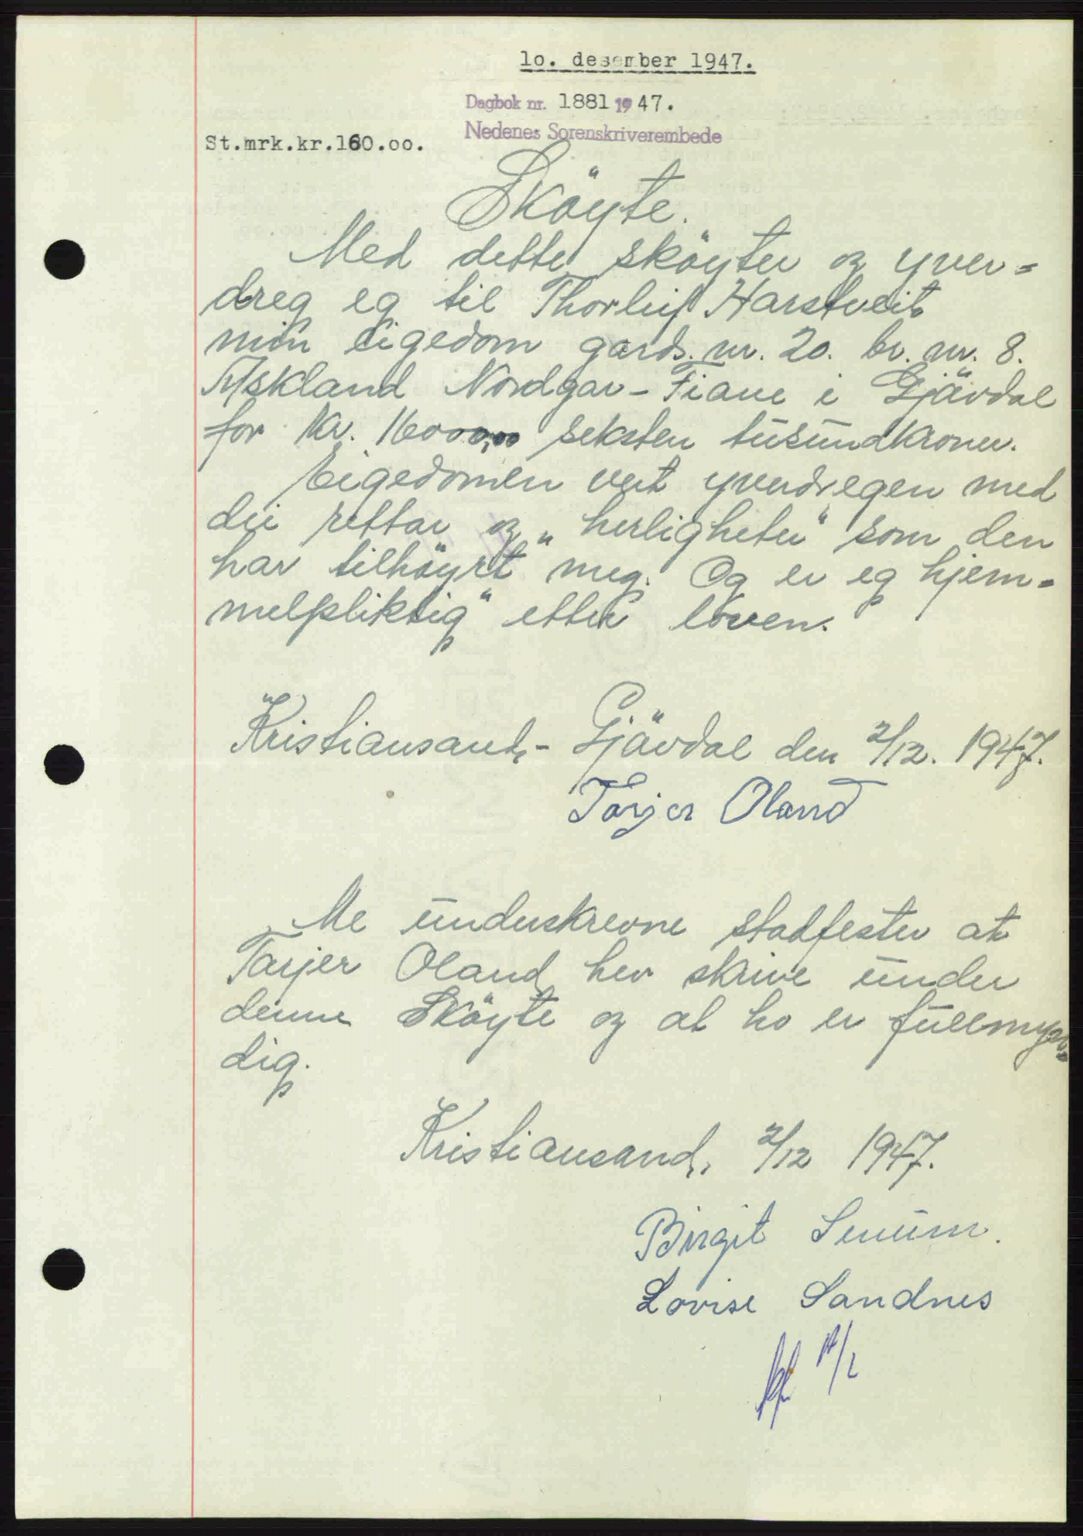 10. desember 1947.
Dagbok nr. 1881 1947.
Nedenes Sorenskriverembede
St.mrk.kr.160.oo.
Sköyte.
Med dette sköyter og yver=
dreg eg til Thorleif Harstveit
min eigedom gards. nr. 20. br. nr. 8.
Askland Nordgar - Fiane i Gjävdal
for Kr. 16000,00 seksten tusundkroner.
Eigedomen vert yverdregen med
dei rettar og „herligheter" som den
har tilhöyrt meg. Og er eg hjem=
melspliktig etter loven.
Kristiansand, - Gjävdal den 2/12. 1947.
Tarjer Oland
Me underskrevne stadfester at
Tarjer Oland hev skrive under
denne Sköyte og at ho er fullmyn=
dig.
Kristiansand, 2/12 1947.
Birgit Senum.
Lovise Sandnes